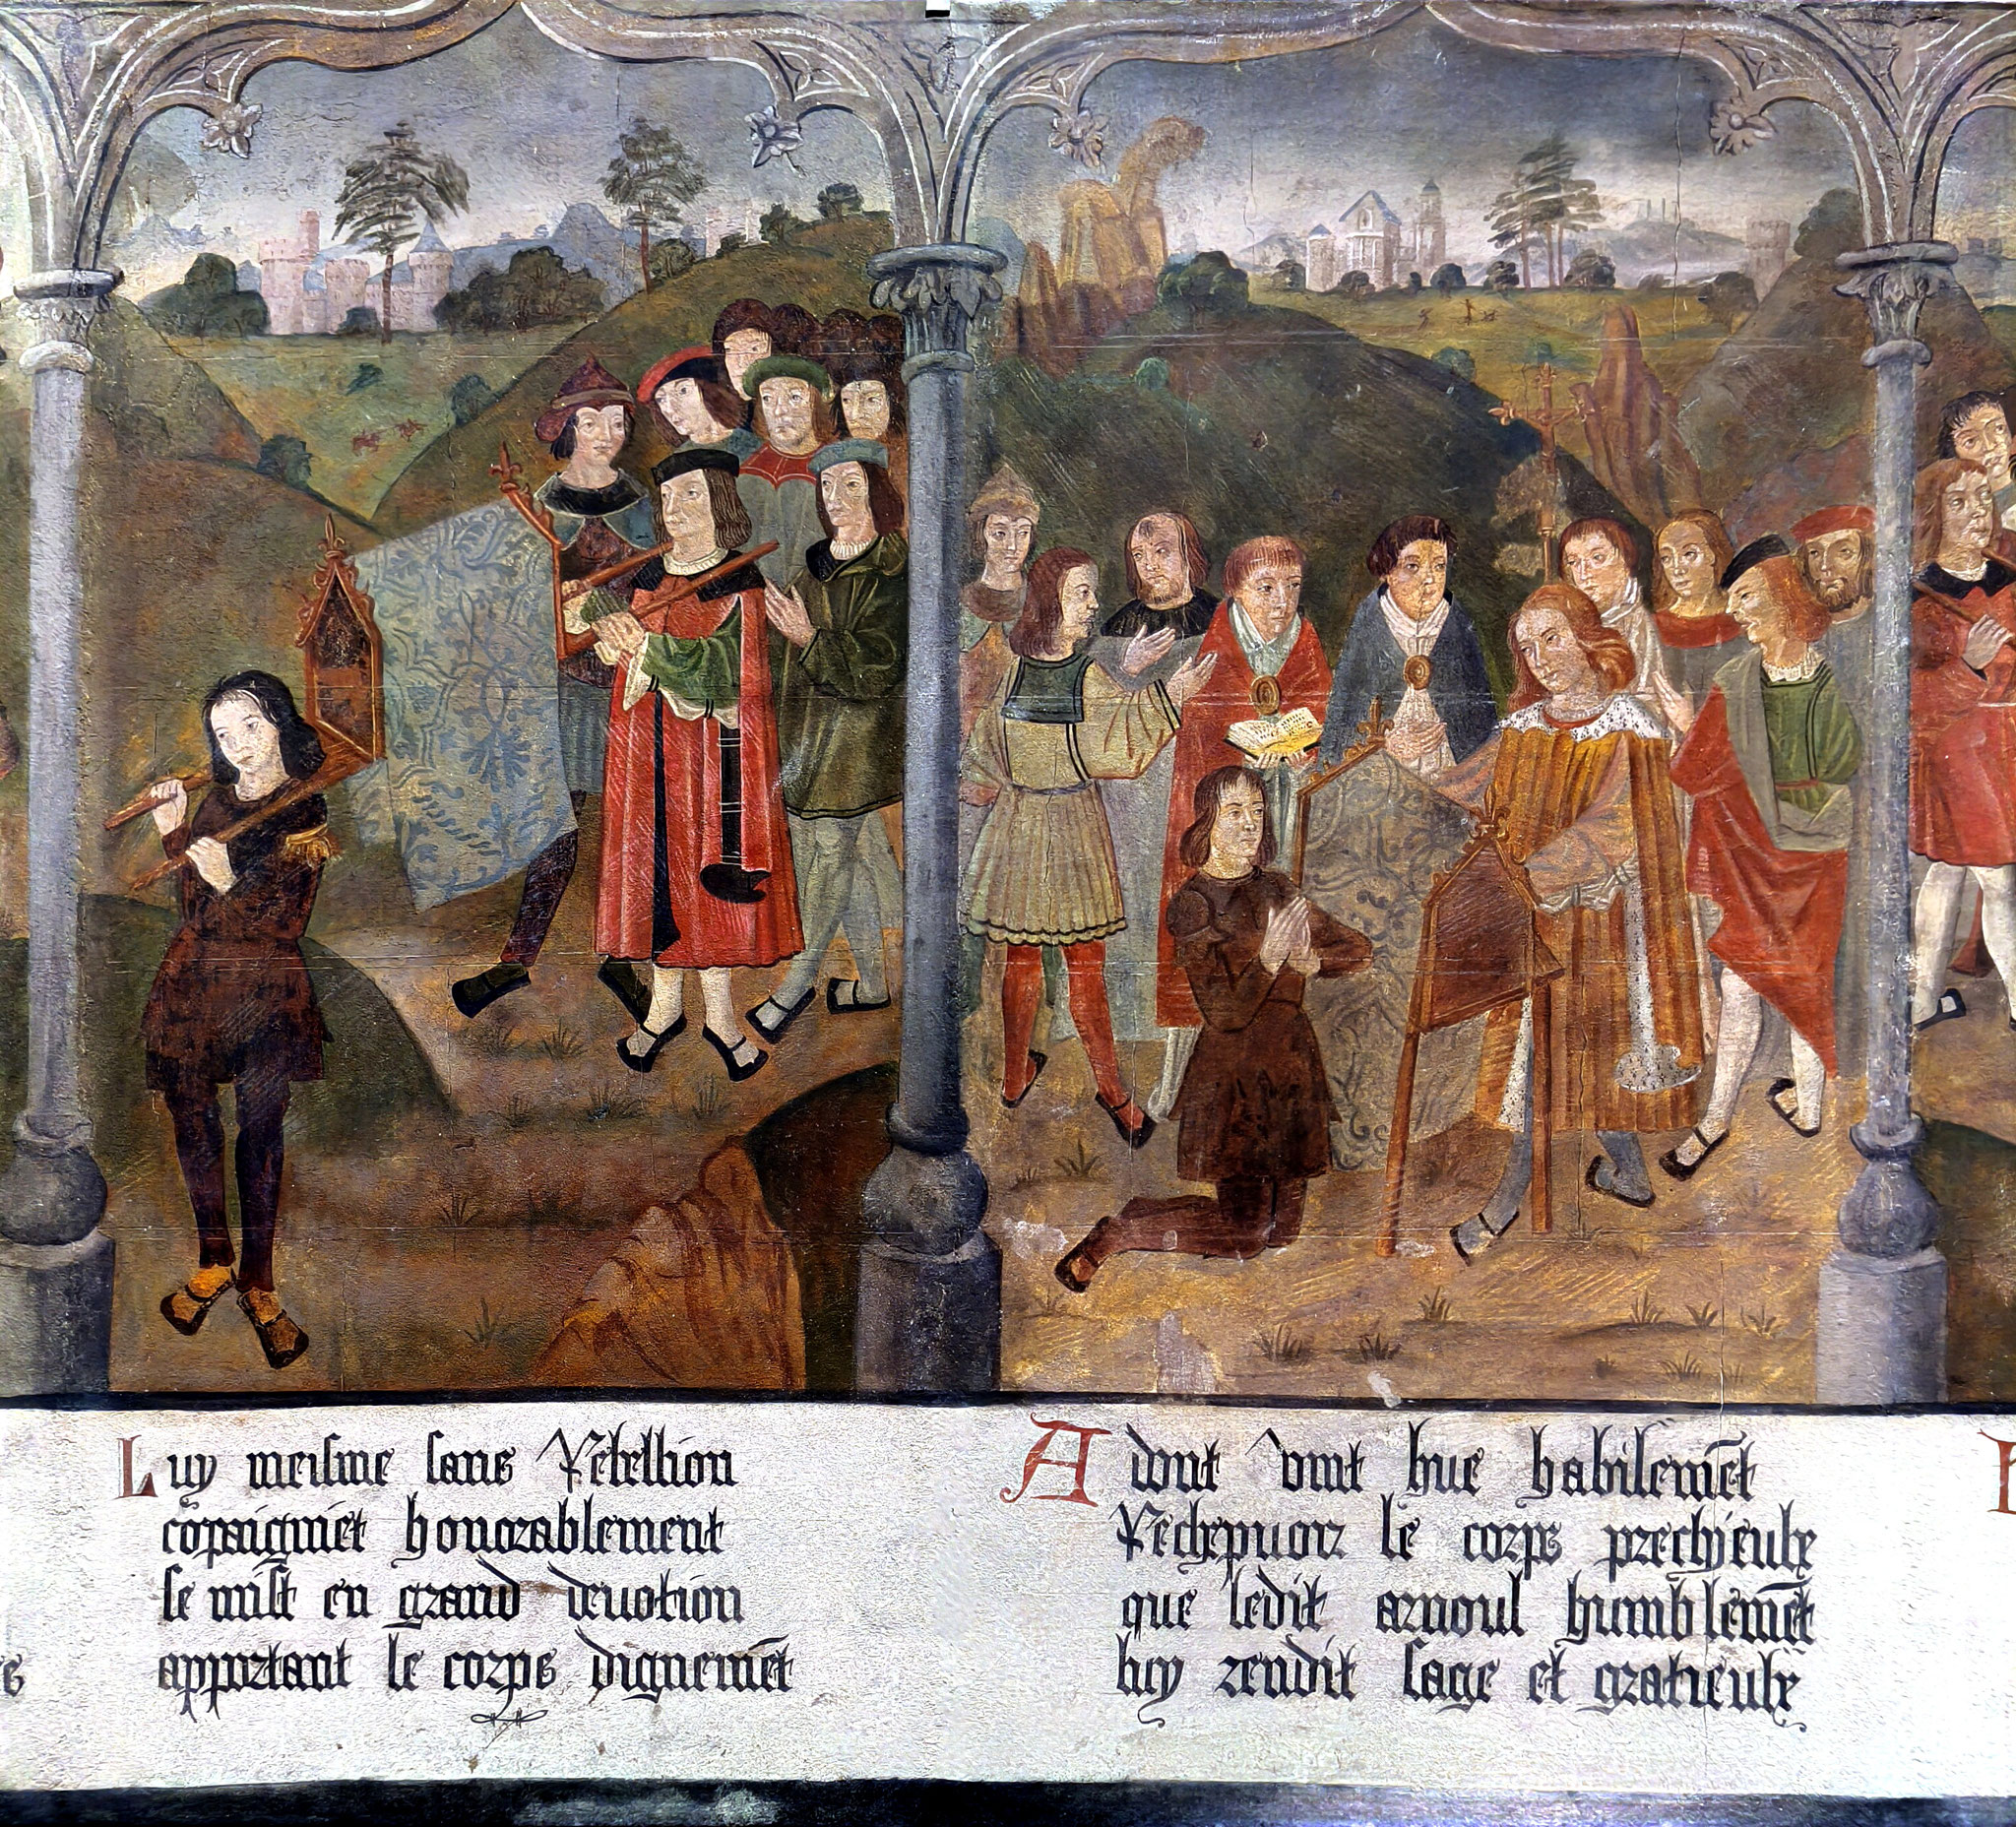 Luy meisme sans rebellion
cōpaigniet honorablement
se mist en grand deuotion
apportant le corps dignemēt
Adont vint hue habilemēt
rechepuoir le corps prechieulx
que ledit arnoul humblemēt
luy rendit sage et gratieulx